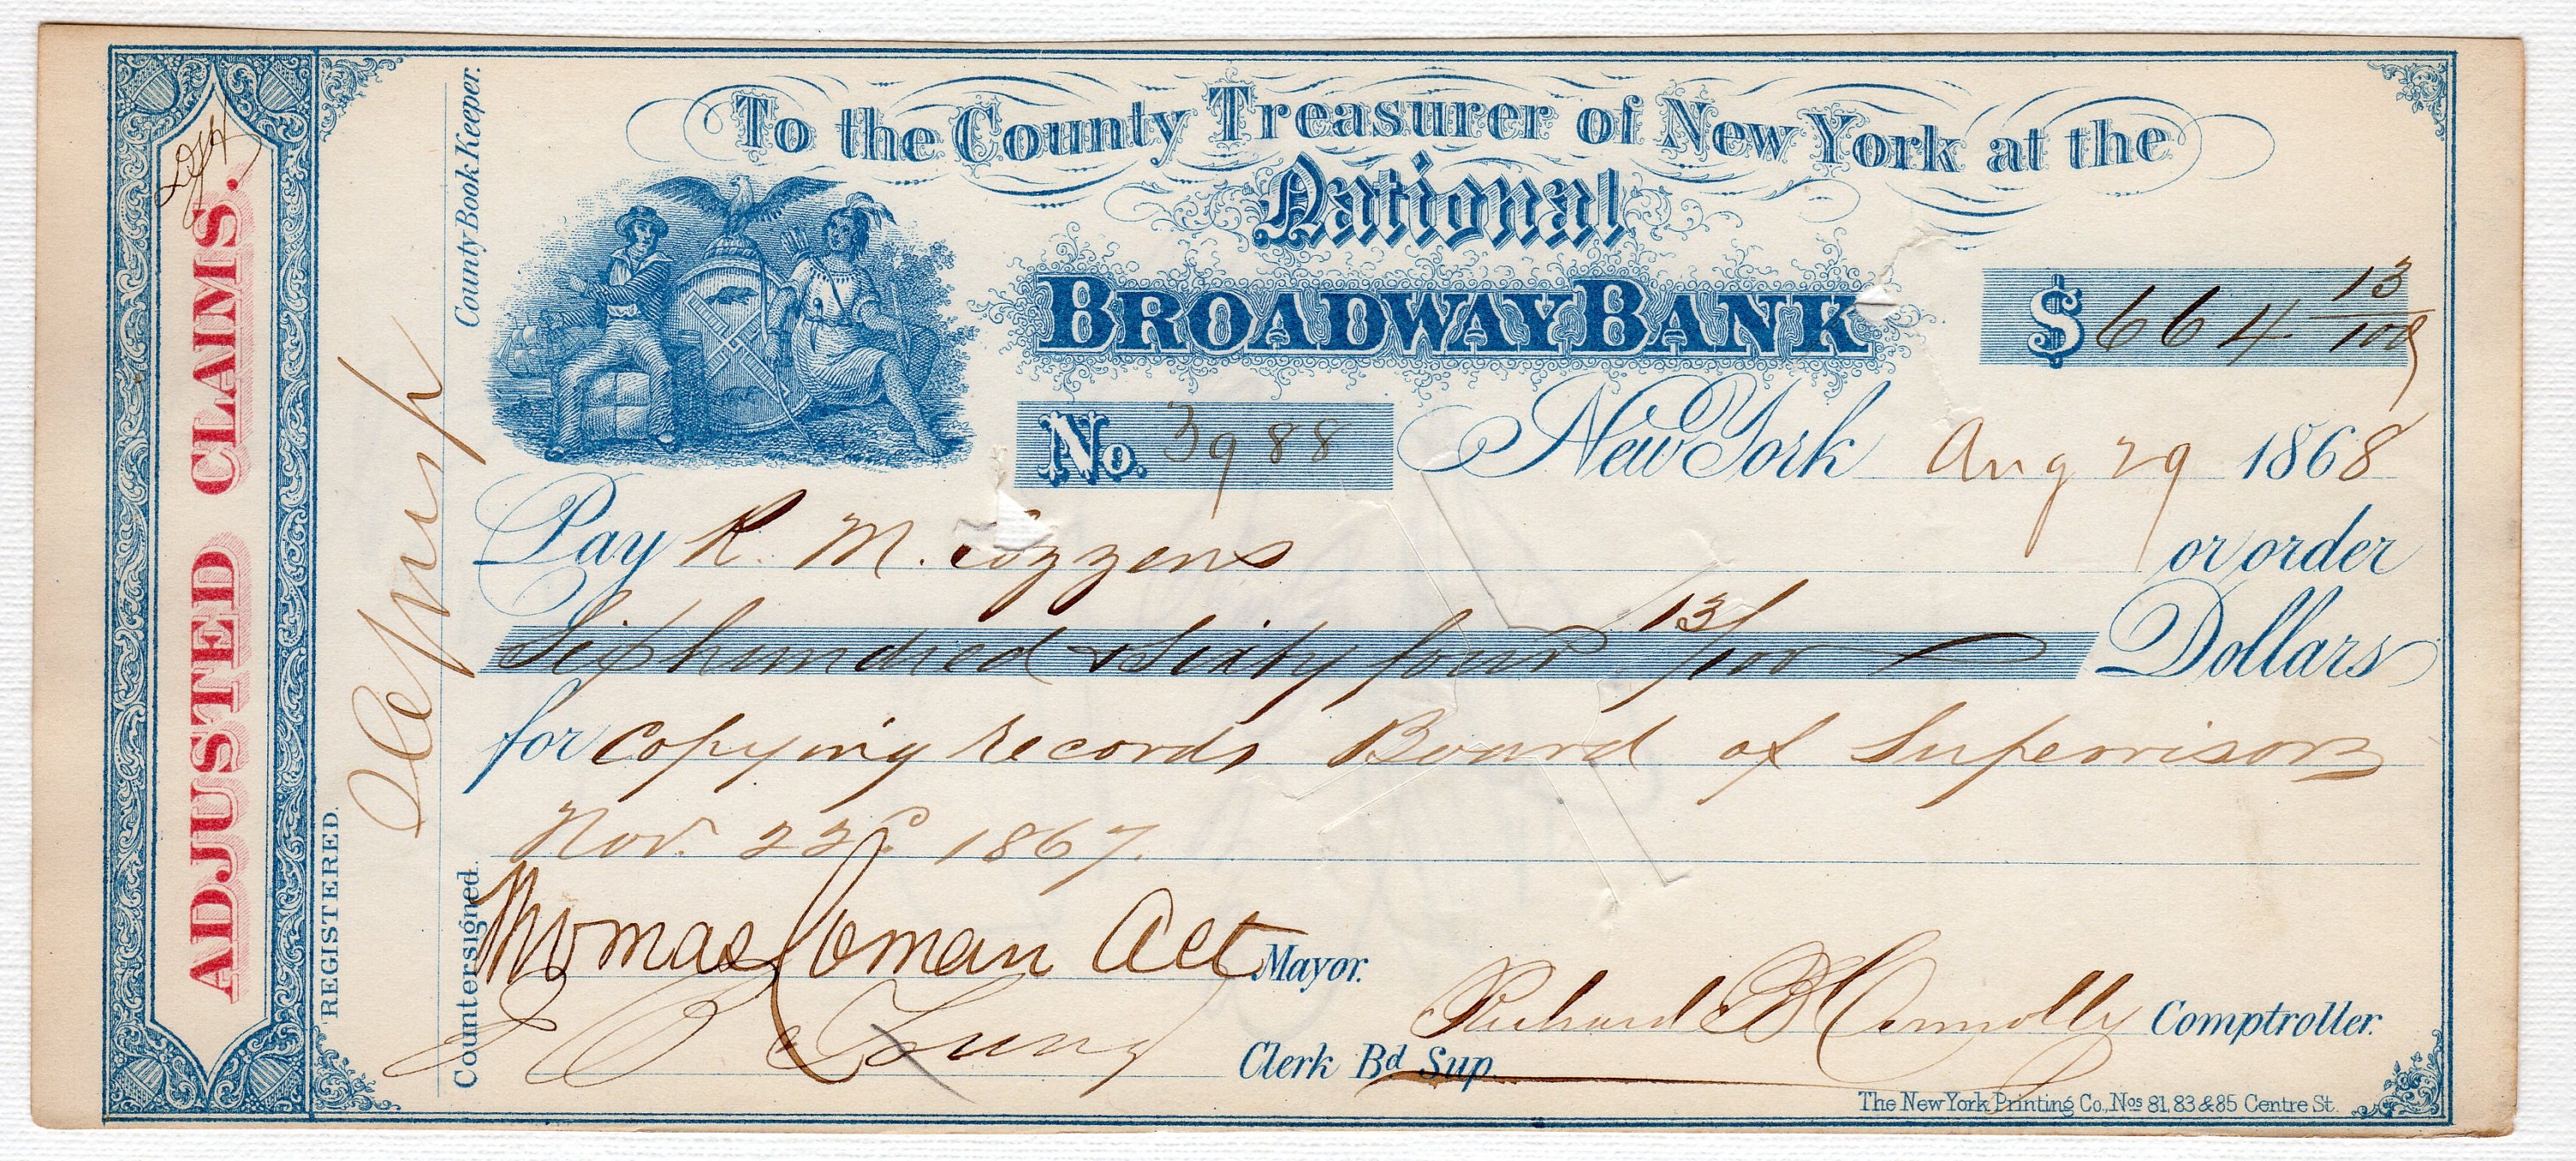 ADJUSTED CLAIMS.
REGISTERED.
County Book Keeper.
Countersigned.
To the County Treasurer of New York at the
National
BROADWAY BANK
$ 664 13/100
No. 3988 New York Aug 29 1868
Pay R. M. Cozzens or order
Six hundred & Sixty four 13/100 Dollars
for Copying records Board of Supervisors
Nov. 22d. 1867.
Thomas Coman Act Mayor.
Richard B Connolly Comptroller.
J B Young Clerk Bd Sup.
The New York Printing Co., Nos 81, 83 & 85 Centre St.